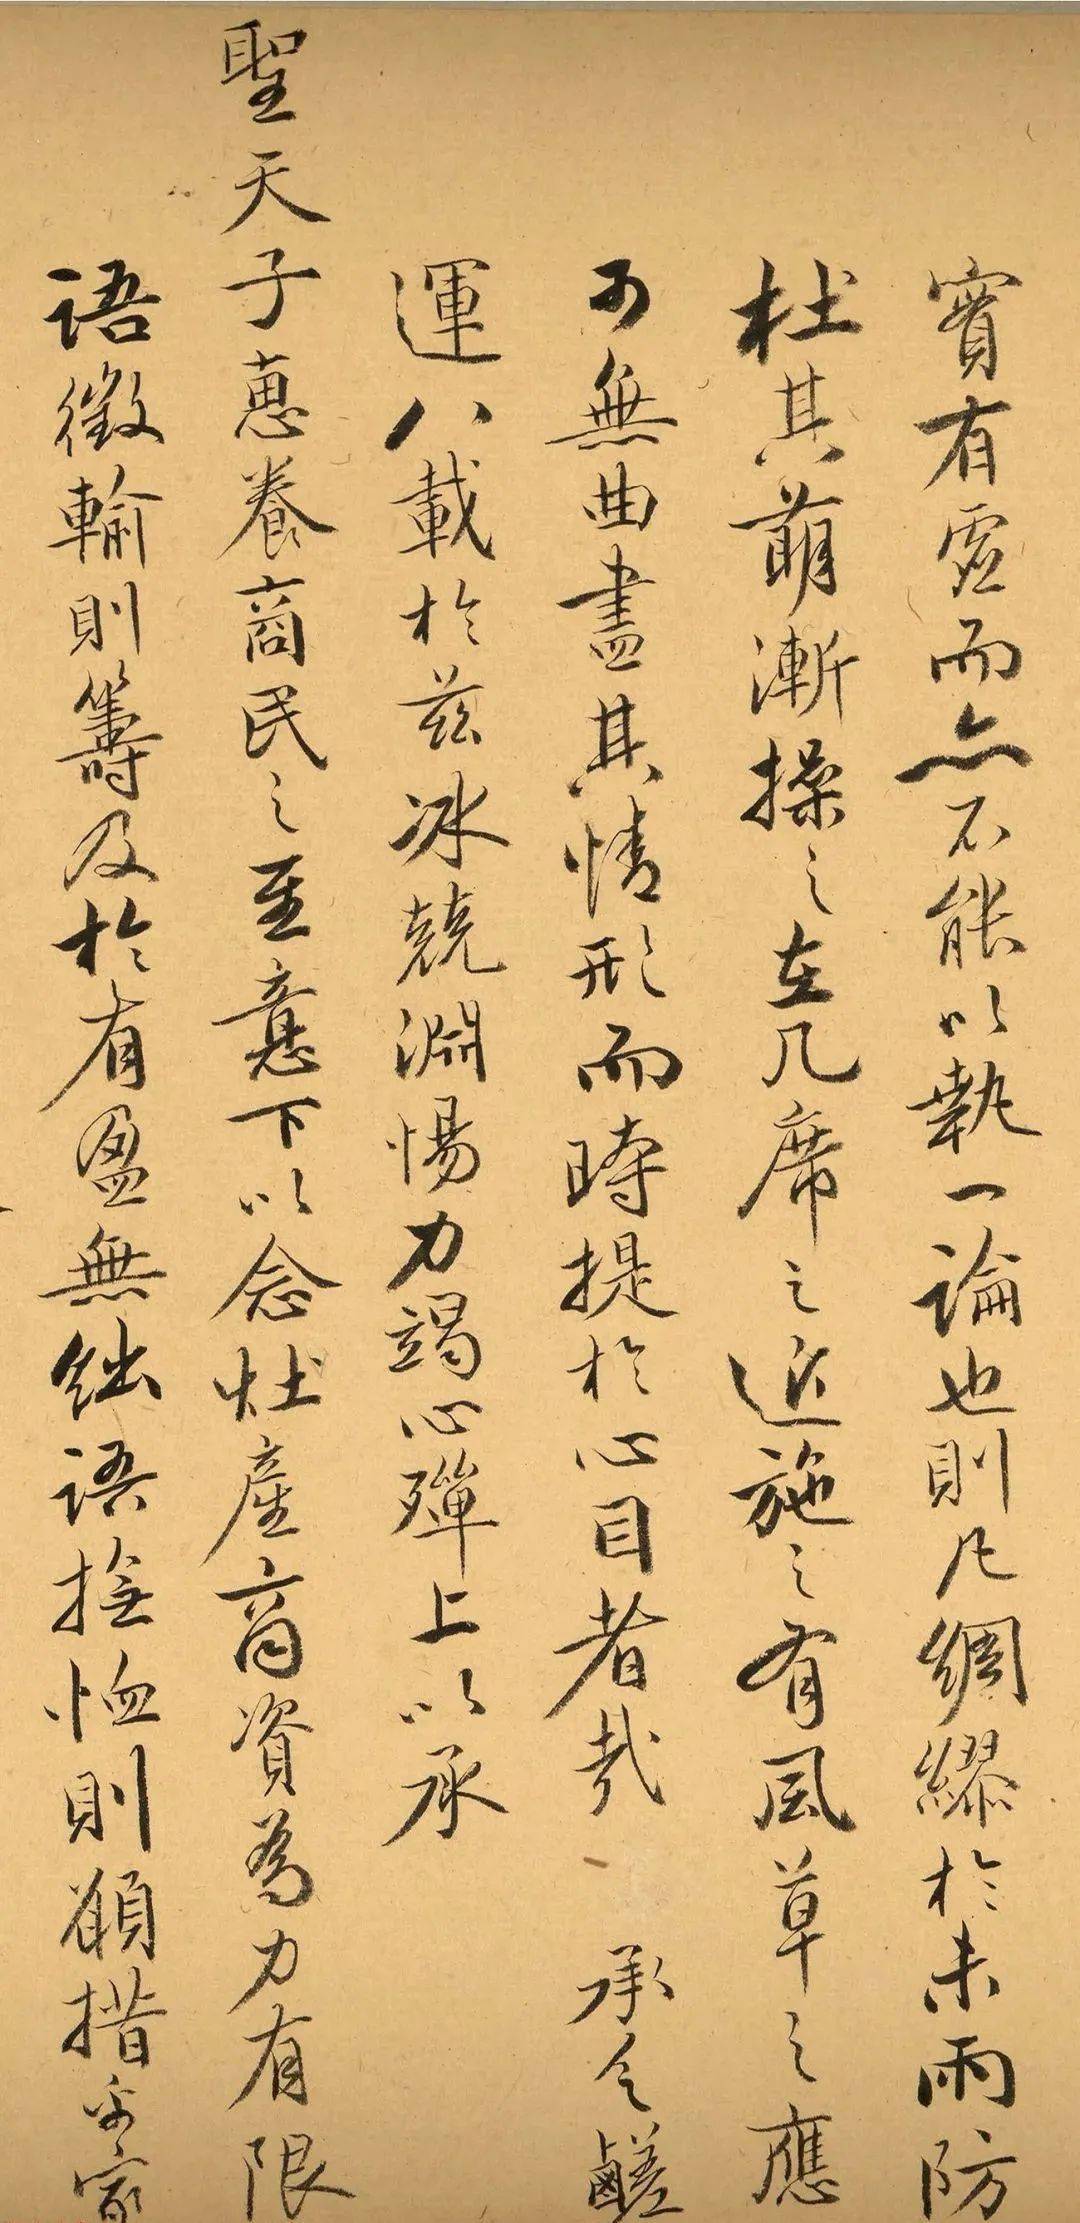 實有虛而亦不能以執一論也則凡綢繆於未雨防
杜其萌漸操之在几席之近施之有風草之應
可無曲盡其情形而時提於心目者哉承乏鹺
運八載於茲冰兢淵惕力竭心殫上以承
聖天子惠養商民之至意下以念灶產商資為力有限
語徵輸則籌及於有盈無絀語撫恤則願措乎家